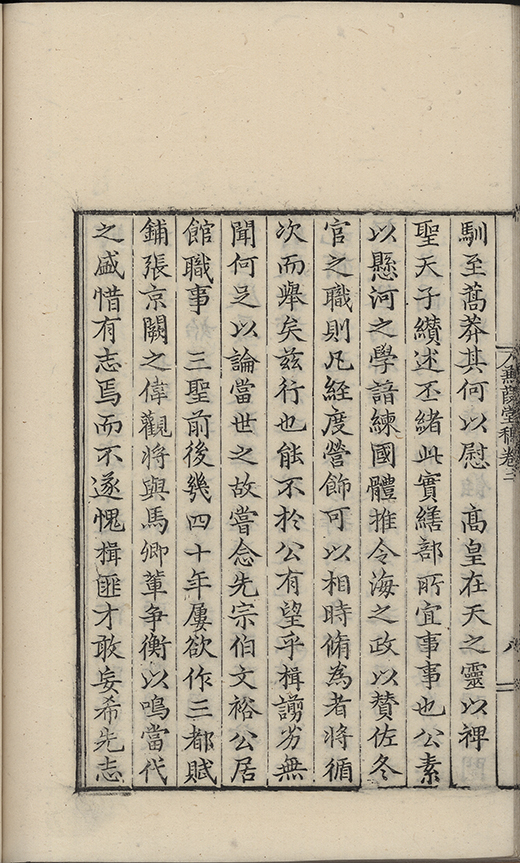 馴至蒿莽其何以慰　高皇在天之靈以裨
聖天子纘述丕緒此實繕部所宜事事也公素
以懸河之學諳練國體推令海之政以贊佐冬
官之職則凡經度營飾可以相時脩為者將循
次而舉矣茲行也能不於公有望乎楫謭劣無
聞何足以論當世之故嘗念先宗伯文裕公居
館職事　三聖前後幾四十年屢欲作三都賦
鋪張京闕之偉觀將與馬卿軰争衡以鳴當代
之盛惜有志焉而不遂愧楫匪才敢妄希先志